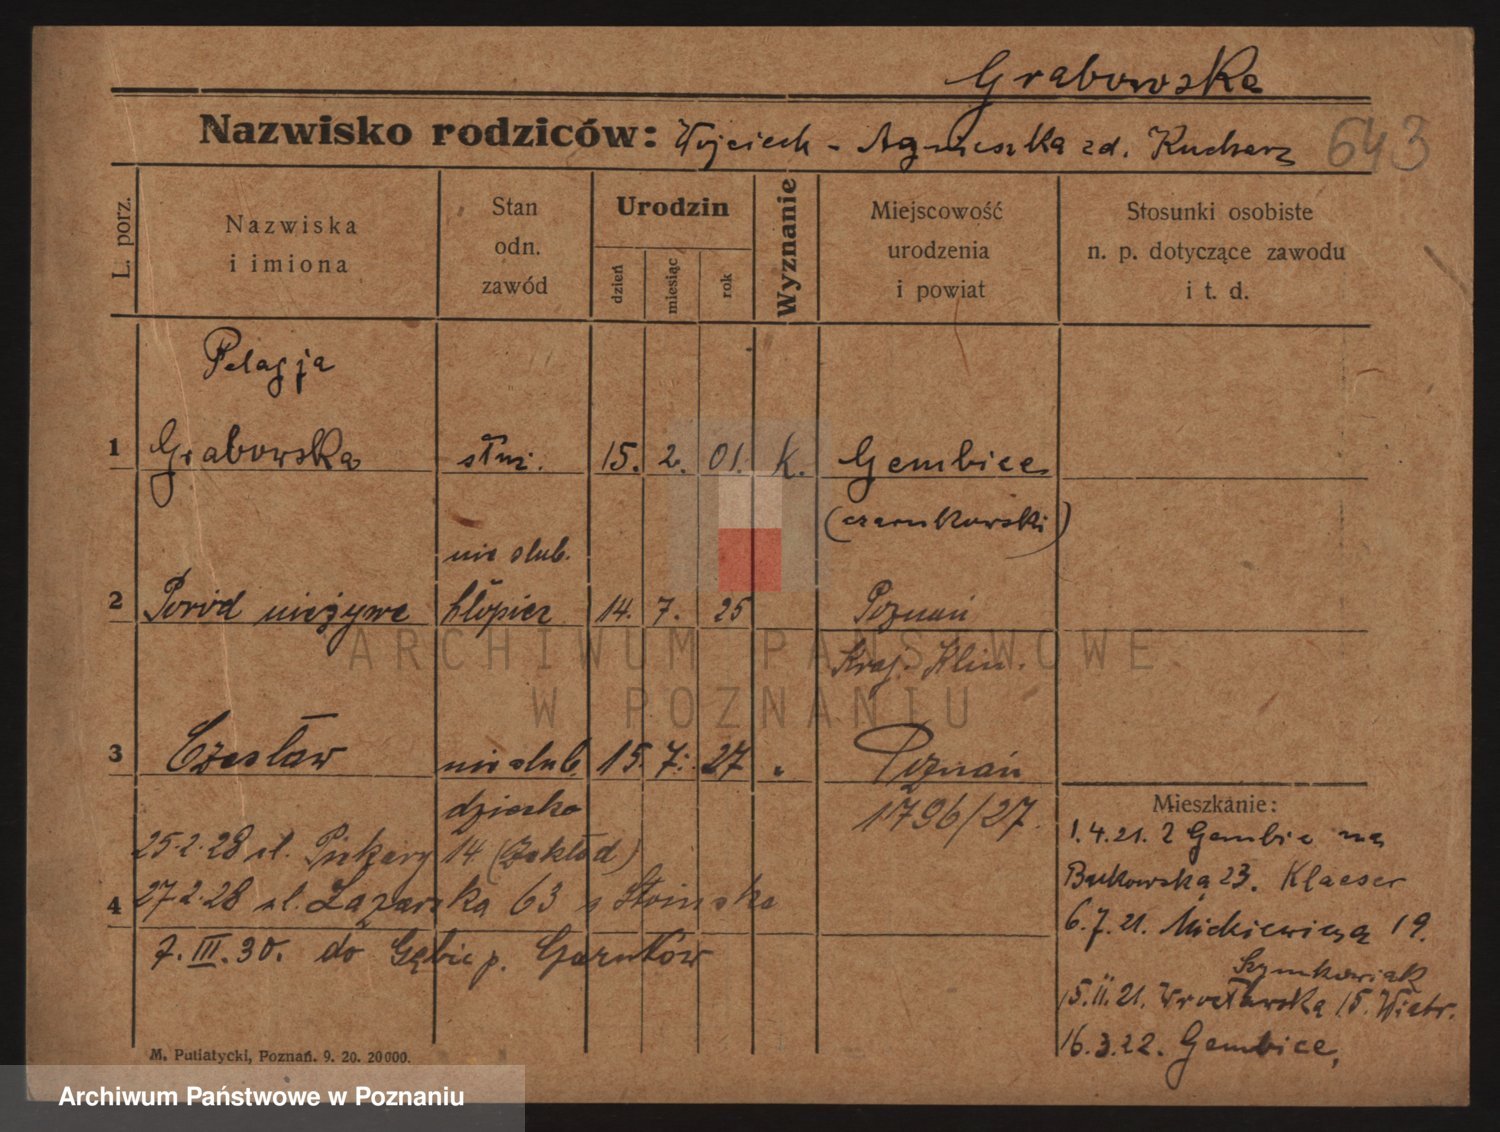 Grabowska
Nazwisko rodziców: Wojciech - Agnieszka zd. Kucharz 643
L. porz.
Nazwiska
i imiona
Stan
odn.
zawód
Urodzin
dzień
miesiąc
rok
Wyznanie
Miejscowość
urodzenia
i powiat
Stosunki osobiste
n. p. dotyczące zawodu
i t. d.
Pelagja
1 Grabowska służ. 15. 2. 01. K. Gembice
(czarnkowski)
nie slub.
2 Poród nieżywe hłopiec 14. 7. 25 Poznań
Kraj. Klin.
3 Czesław nieslub. 15. 7. 27 " Poznań
dziecko 1796/27.
25.2.28 ul. Piekary 14 (Zakład)
4 27.2.28 ul. Łazarska 63 s Słoinska
7.III.30. do Gębic p. Czarnków
Mieszkanie:
1.4.21. z Gembic na
Bukowska 23. Klaeser
6.7.21. Mickiewicza 19.
Szymkowiak
15.II.21. Wrocławska 15. Wiatr.
16.3.22. Gembice,
M. Putiatycki, Poznań. 9. 20. 20000.
ARCHIWUM PAŃSTWOWE
W POZNANIU
Archiwum Państwowe w Poznaniu